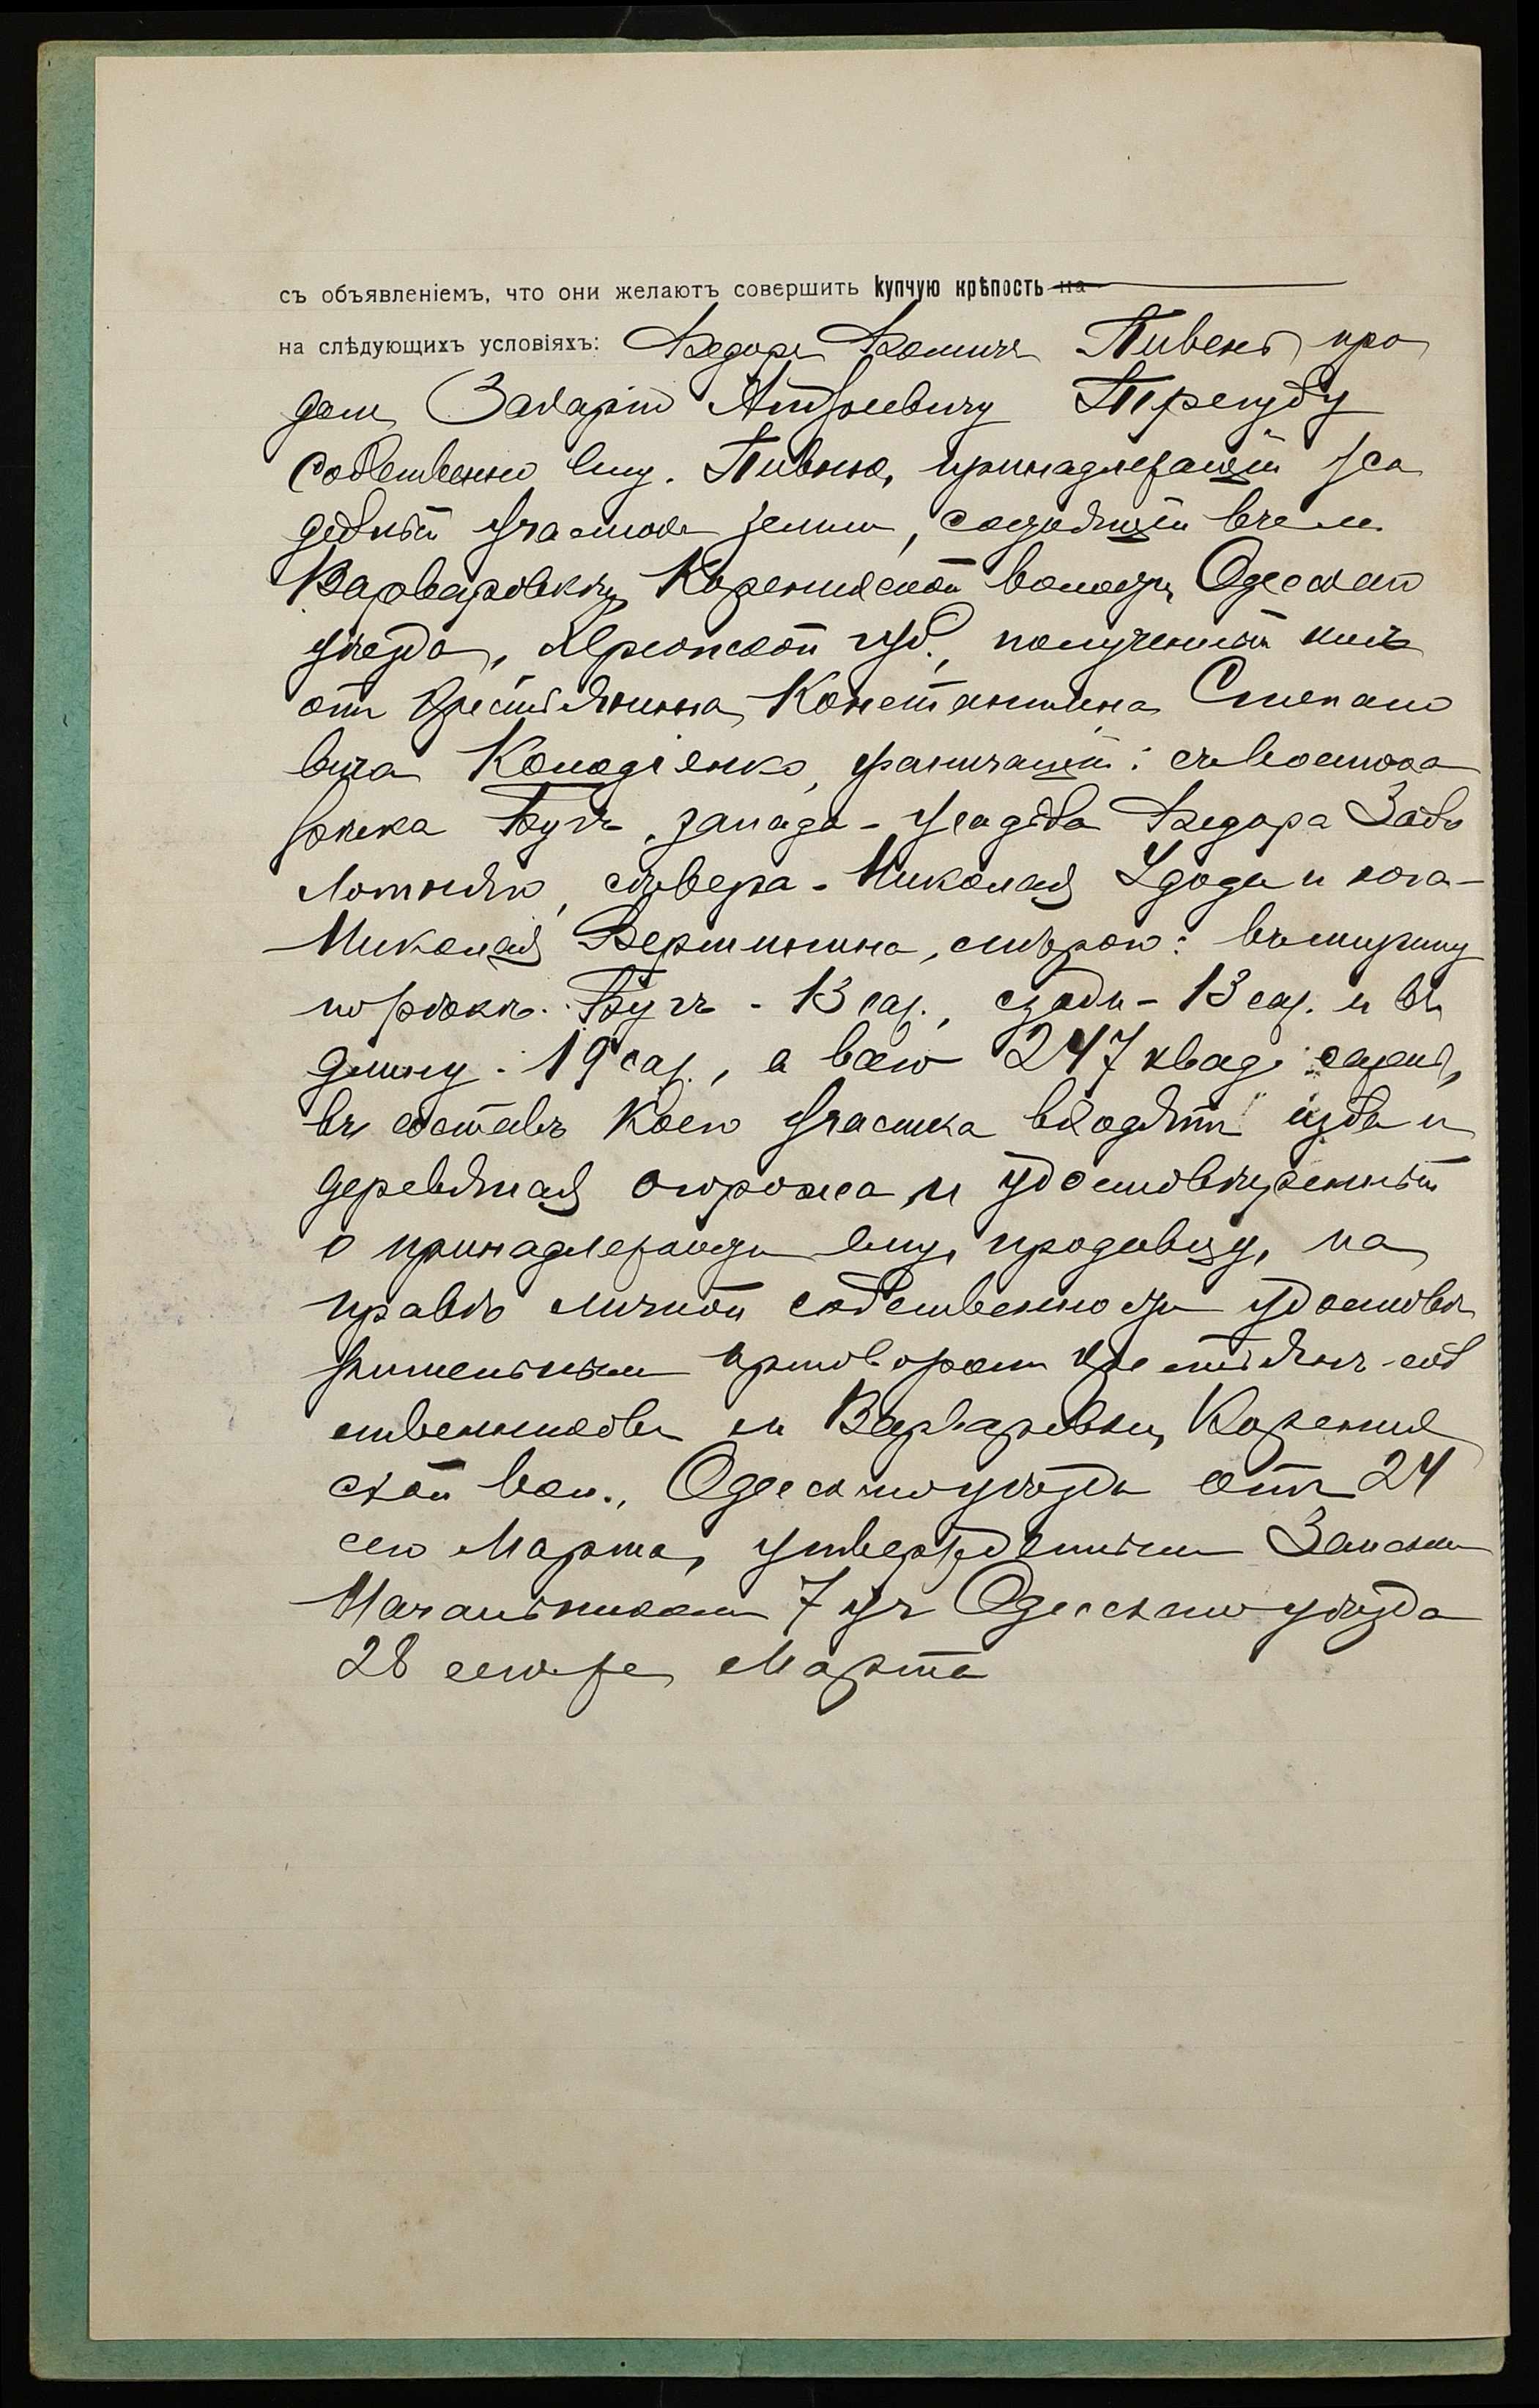 съ объявленіемъ, что они желаютъ совершить купчую крѣпость на
на слѣдующихъ условіяхъ: Ѳедоръ Ѳомичъ Пивень про
далъ Захарію Андреевичу Перегуду
собственно ему, Пивню, принадлежащій уса
дебный участокъ земли, состоящій въ сел.
Варваровкѣ, Коренихской волости, Одесскаго
уѣзда, Херсонской губ., полученный имъ
отъ крестьянина Константина Степано
вича Колодіенко, граничащій: съ востока
рѣка Бугъ, запада - усадьба Ѳедора Забо
лотняго, сѣвера - Николая Удода и юга -
Николая Вершинина, мѣрою: въ ширину
по рѣкѣ Бугъ - 13 саж., сзади - 13 саж. и въ
длину - 19 саж., а всего 247 квад. сажень,
въ составъ коего участка входятъ изба и
деревянная огорожа, и удостовѣренный
о принадлежности ему, продавцу, на
правѣ личной собственности удостовѣ
рительнымъ приговоромъ крестьянъ-соб
ственниковъ с. Варваровки, Корених
ской вол., Одесскаго уѣзда отъ 24
сего Марта, утвержденнымъ Земскимъ
Начальникомъ 7 уч. Одесскаго уѣзда
28 сего же Марта